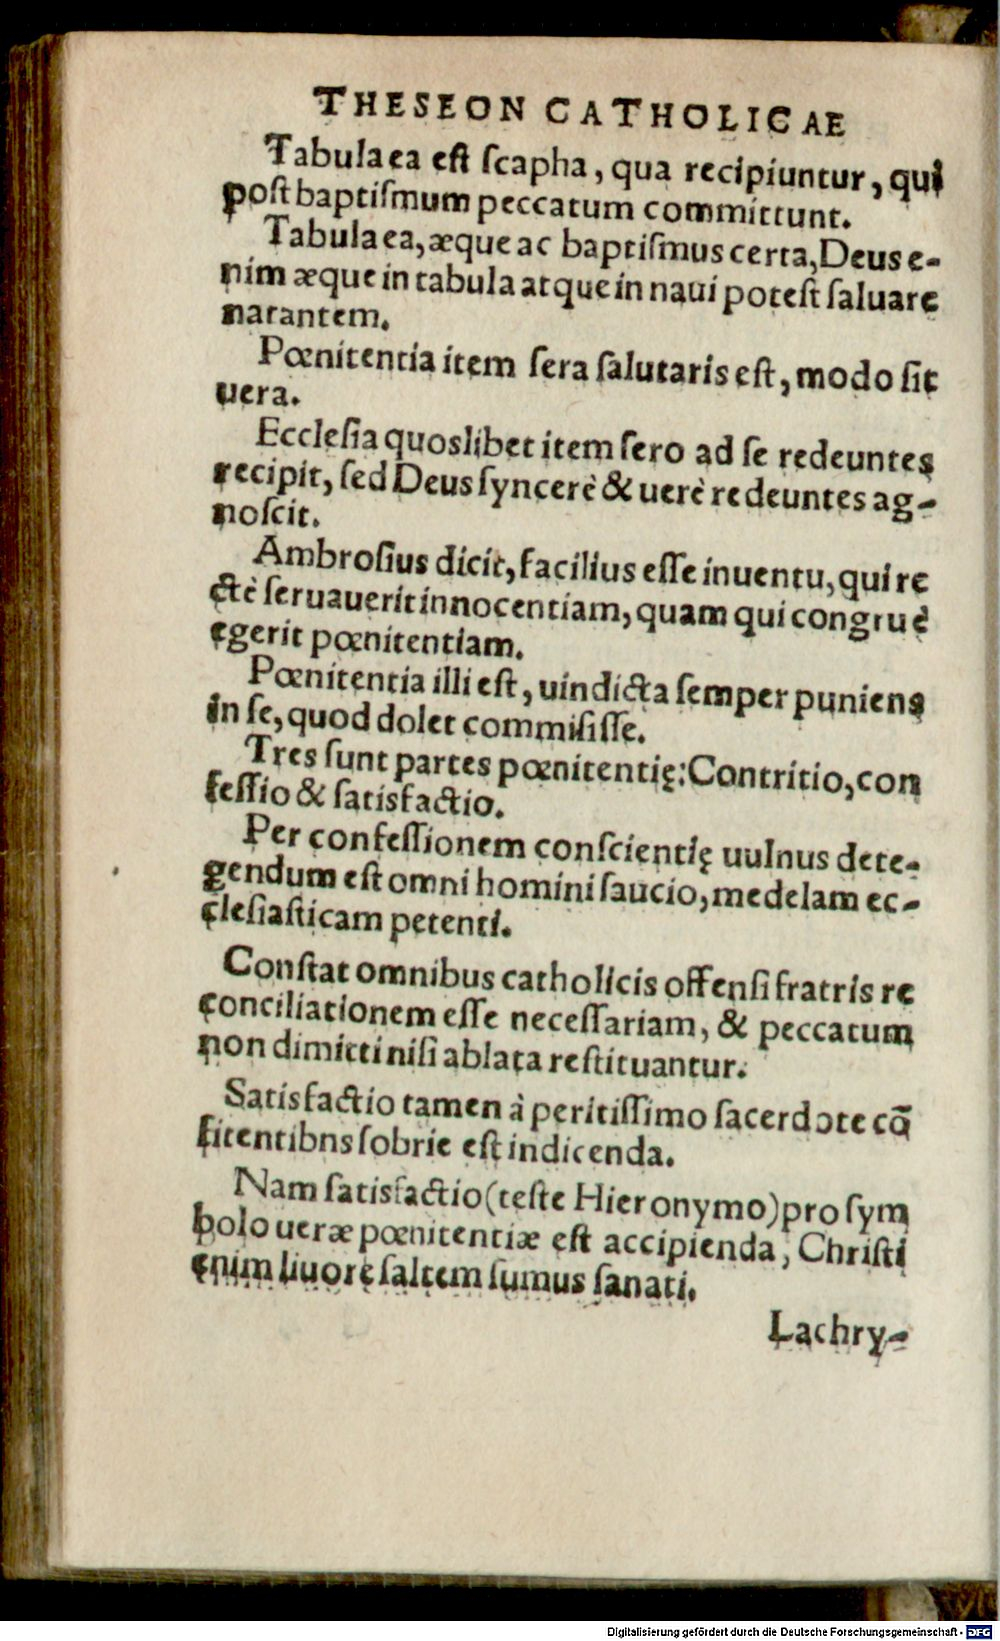 THESEON CATHOLICAE
Tabula ea est scapha, qua recipiuntur, qui
post baptismum peccatum committunt.
Tabula ea, æque ac baptismus certa, Deus e-
nim æque in tabula atque in naui potest saluare
natantem.
Pœnitentia item sera salutaris est, modo sit
uera.
Ecclesia quoslibet item sero ad se redeuntes
recipit, sed Deus syncerè & uerè redeuntes ag-
noscit.
Ambrosius dicit, facilius esse inuentu, qui re
ctè seruauerit innocentiam, quam qui congruè
egerit pœnitentiam.
Pœnitentia illi est, uindicta semper puniens
in se, quod dolet commisisse.
Tres sunt partes pœnitentię: Contritio, con
fessio & satisfactio.
Per confessionem conscientię uulnus dete-
gendum est omni homini saucio, medelam ec-
clesiasticam petenti.
Constat omnibus catholicis offensi fratris re
conciliationem esse necessariam, & peccatum
non dimitti nisi ablata restituantur.
Satisfactio tamen à peritissimo sacerdote cō
fitentibns sobrie est indicenda.
Nam satisfactio (teste Hieronymo) pro sym
bolo ueræ pœnitentiæ est accipienda, Christi
enim liuore saltem sumus sanati.
Lachry-
Digitalisierung gefördert durch die Deutsche Forschungsgemeinschaft - DFG